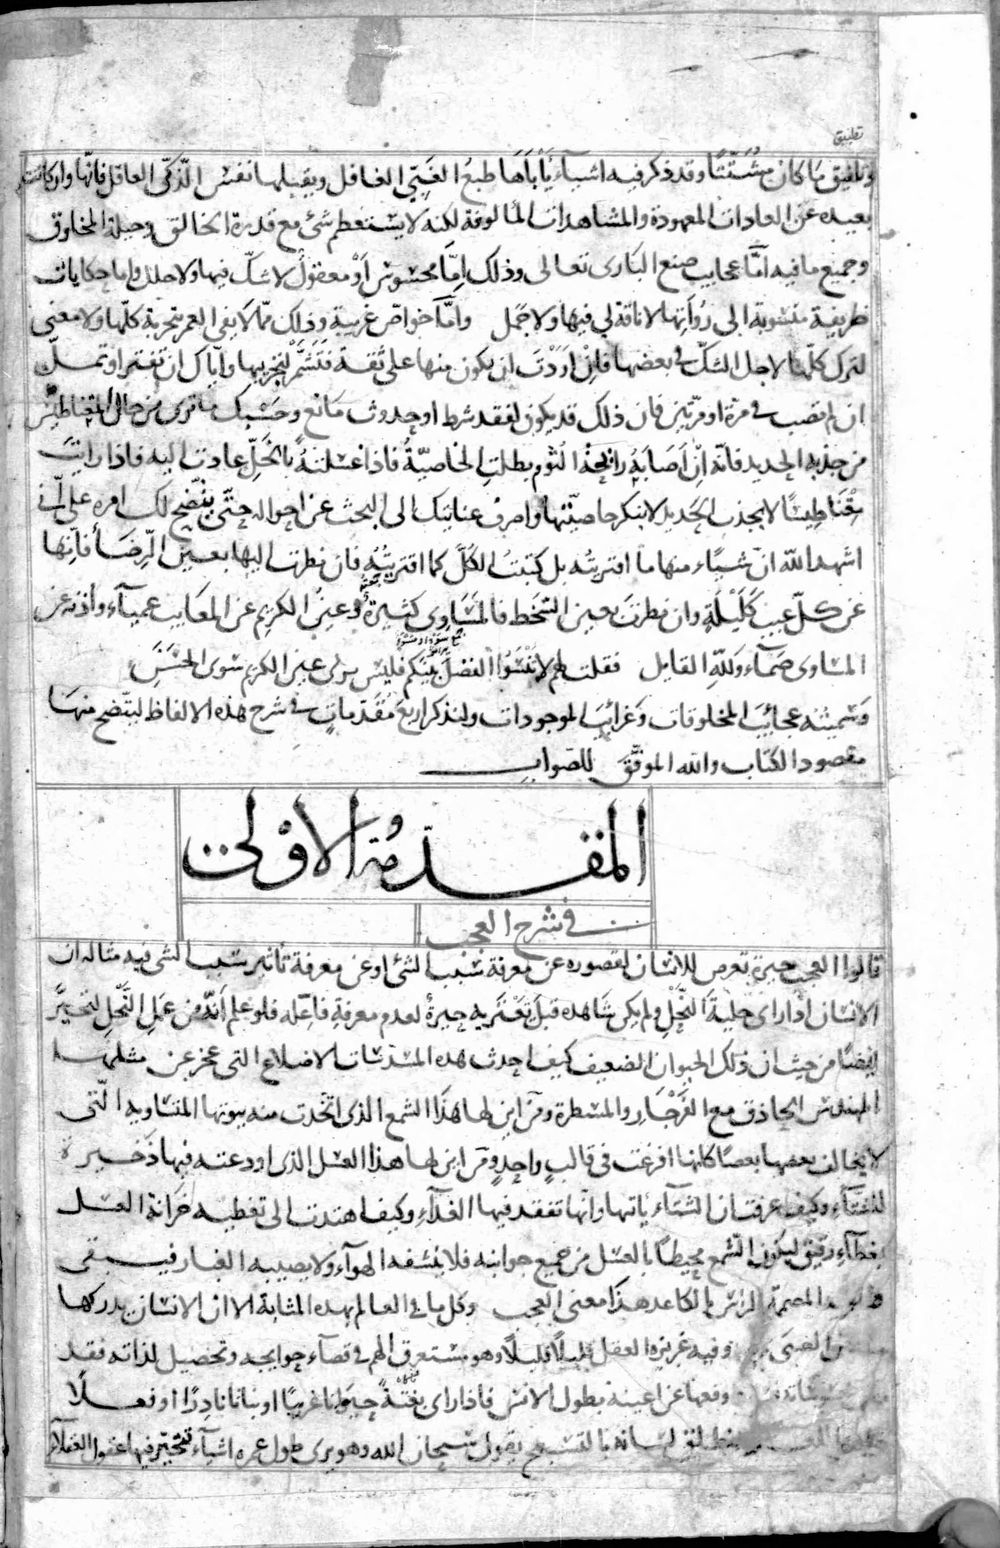 تطبيق
وتلفيق ما كان مشتتا وقد ذكر فيه اشياء يأباها طبع الغبي الغافل ويقبلها نفس الذكي العاقل فانها وان كانت
بعيده عن العادات المعهودة والمشاهدات المألوفة لكنه لا يستعظم شئ مع قدرة الخالق وجبلة المخلوق
وجميع ما فيه اما عجايب صنع البارى تعالى وذلك اما محسوس او معقول لا شك فيها ولا خلل واما حكايات
ظريفة منسوبة الى رواتها لا ناقة لي فيها ولا جمل واما خواص غريبة وذلك مما لا يفي العمر بتجربة كلها ولا معنى
لترك كلها لاجل الشك في بعضها فان اردت ان يكون منها على ثقة فتشمر لتجربها واياك ان تفتر او تمل
ان لم تصب في مرة او مرتين فان ذلك قد يكون لفقد شرط او حدوث مانع وحسبك ما ترى من حال المقناطيس
من جذبه الحديد فانه ان اصابه رايحة الثوم بطلت الخاصية فاذا غسلته بالخل عادت اليه فاذا رايت
مقناطيسا لا يجذب الحديد لا تنكر خاصيتها واصرف عنايتك الى البحث عن احواله حتى يتضح لك امره على اني
اشهد الله ان شيئا منها ما افتريته بل كتبت الكل كما اقتريته فان نظرت اليها بعين الرضا فانها
عن كل عيب كليلة وان نظرت بعين السخط فالمساوى كثيرة وعين الكريم عن المعايب عمياء وأذنه عن
المساوى صماء ولله القايل فقلت لهم لا تنسوا الفضل بينكم فليس يرى عين الكريم سوى الحسن
وسميته عجايب المخلوقات وغرائب الموجودات ولنذكر اربع مقدمات في شرح هذه الالفاظ ليتضح منها
مقصود الكتاب والله الموفق للصواب
المقدمة الاولى
في شرح العجب
قالوا العجب حيرة تعرض للانسان لقصوره عن معرفة سبب الشئ او عن معرفة تأثير سبب الشى فيه مثاله ان
الانسان اذا راى خلية النحل ولم يكن شاهده قبل تعتريه حيرة لعدم معرفة فاعله فلو علم أنه من عمل النحل لتحير
ايضا من حيث ان ذلك الحيوان الضعيف كيف احدث هذه المسدسات الاضلاع التى عجز عن مثلها
المهندس الحاذق مع الفرجار والمسطرة ومن اين لها هذا الشمع الذى اتخذت منه بيوتها المتساويه التى
لا يخالف بعضها بعضا كانها افرغت في قالب واحد ومن اين لها هذا العسل الذى اودعته فيها ذخيرة
للشتاء وكيف عرفت ان الشتاء ياتيها وانها تفقد فيها الغذاء وكيف اهتدت الى تغطية خزانة العسل
بغطاء رقيق ليكون الشمع محيطا بالعسل من جميع جوانبه فلا ينشفه الهواء ولا يصيبه الغبار فيبقى
المصممة الراس بالكاغد هذا معنى العجب وكل ما في العالم بهذه المثابة الا ان الانسان يدركها
الصبى وفيه غريزه العقل قليلا قليلا وهو مستغرق الهم في قضاء حوايجه وتحصيل لذاته فقد
وقعها عن اعينه بطول الانس فاذا راى بغتة حيوانا غريبا او نباتا نادرا او فعلا
لسانه بالتسبيح يقول سبحان الله وهو يرى طول عمره اشياء تتحير فيها عقول العقلاء